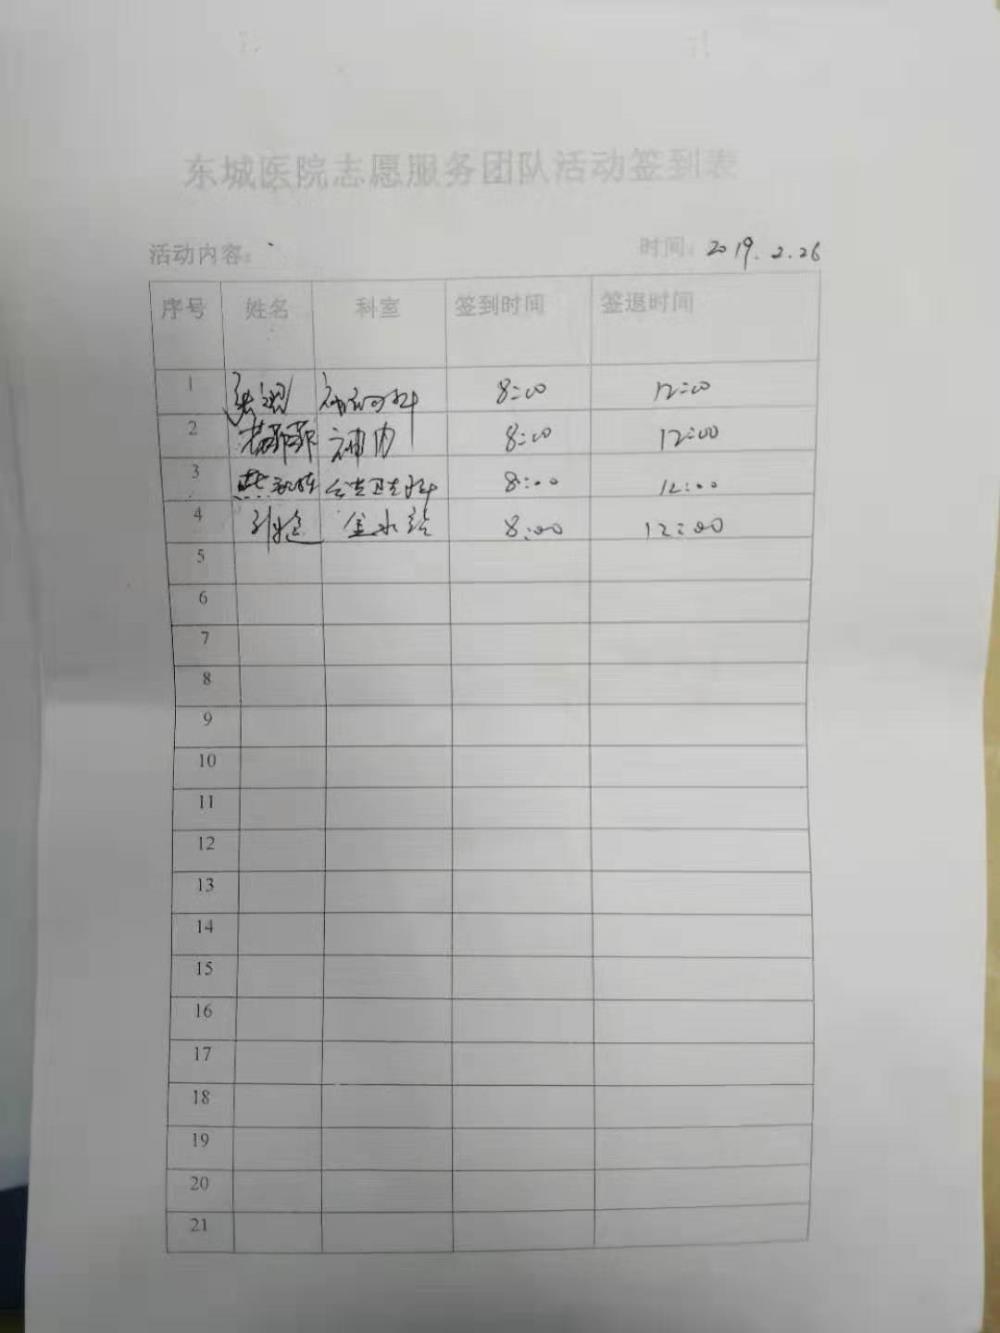 东城医院志愿服务团队活动签到表
活动内容： 时间：2019.2.26
序号 姓名 科室 签到时间 签退时间
1 8:00 12:00
2 神内 8:00 12:00
3 公共卫生科 8:00 12:00
4 8:00 12:00
5
6
7
8
9
10
11
12
13
14
15
16
17
18
19
20
21